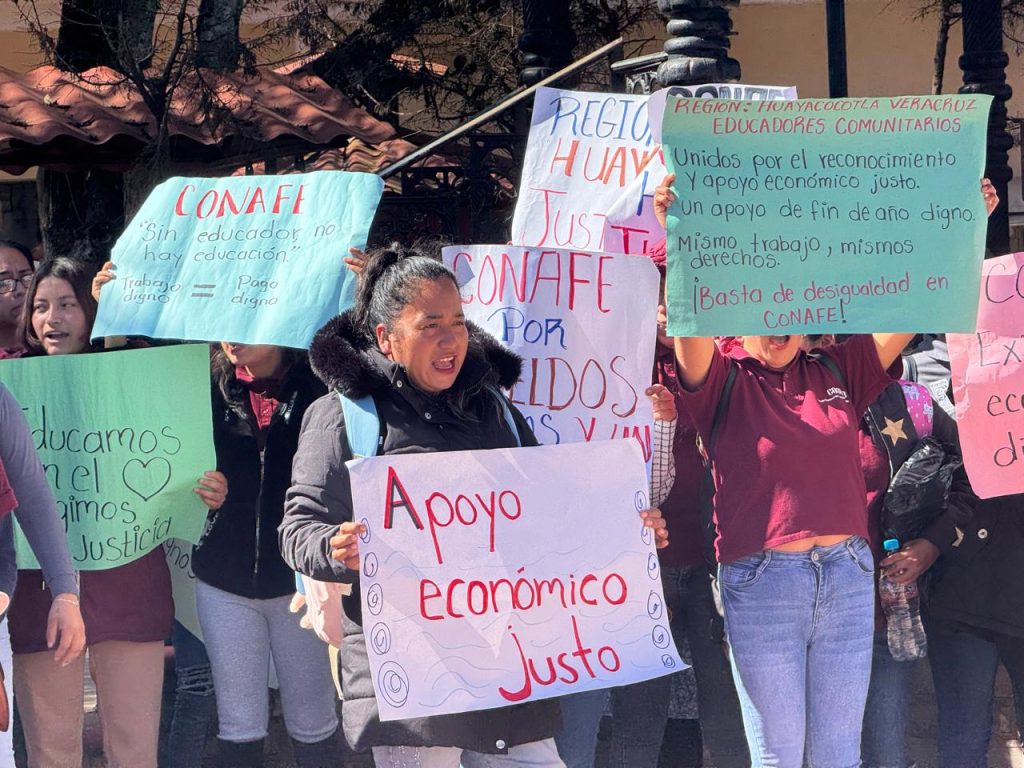 CONAFE
"Sin educador, no
hay educación."
Trabajo digno = Pago digno
Educamos
en el
Justicia
REGIÓN
HUAYA
JUST
CONAFE
POR
Y UN
REGIÓN: HUAYACOCOTLA VERACRUZ
EDUCADORES COMUNITARIOS
Unidos por el reconocimiento
y apoyo económico justo.
Un apoyo de fin de año digno.
Mismo trabajo, mismos
derechos.
¡Basta de desigualdad en
CONAFE!
Apoyo
económico
justo